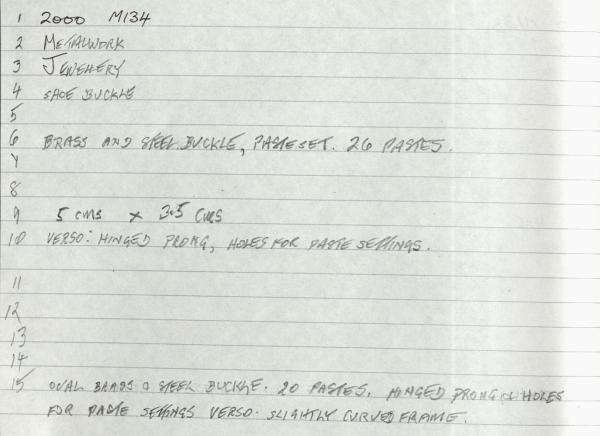 1 2000 M134
2 METALWORK
3 JEWELLERY
4 SHOE BUCKLE
5
6 BRASS AND STEEL BUCKLE, PASTE SET. 26 PASTES.
7
8
9 5 cms x 3.5 cms
10 VERSO: HINGED PRONG, HOLES FOR PASTE SETTINGS.
11
12
13
14
15 OVAL BRASS & STEEL BUCKLE. 20 PASTES. HINGED PRONG & HOLES
FOR PASTE SETTINGS VERSO. SLIGHTLY CURVED FRAME.